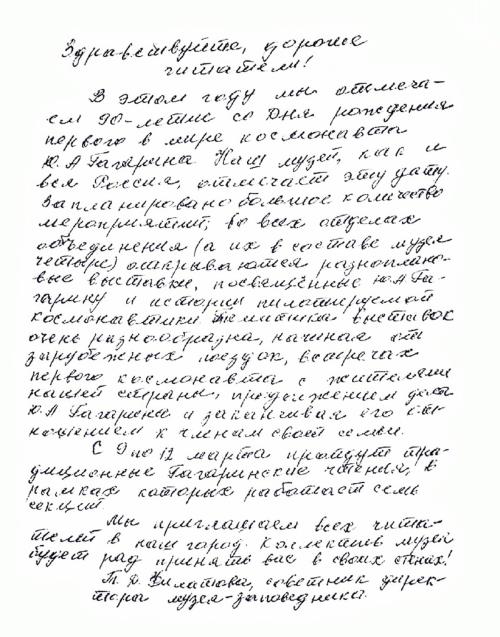 Здравствуйте, дорогие
читатели!
В этом году мы отмеча-
ем 90-летие со Дня рождения
первого в мире космонавта
Ю.А Гагарина Наш музей, как и
вся Россия, отмечает эту дату.
Запланировано большое количество
мероприятий; во всех отделах
объединения (а их в составе музея
четыре) открываются разноплано-
вые выставки, посвещённые Ю.А Га-
гарину и истории пилотируемой
космонавтики Тематика выставок
очень разнообразна, начиная от
зарубежных поездок, встречах
первого космонавта с жителями
нашей страны, продолжением дела
Ю.А Гагарина и заканчивая его от-
ношением к членам своей семьи.
С 9 по 12 марта пройдут тра-
диционные Гагаринские чтения, в
рамках которых работает семь
секций
Мы приглашаем всех чита-
телей в наш город. Коллектив музея
будет рад принять вас в своих стенах!
Т.Д. Филатова, советник дирек-
тора музея-заповедника.